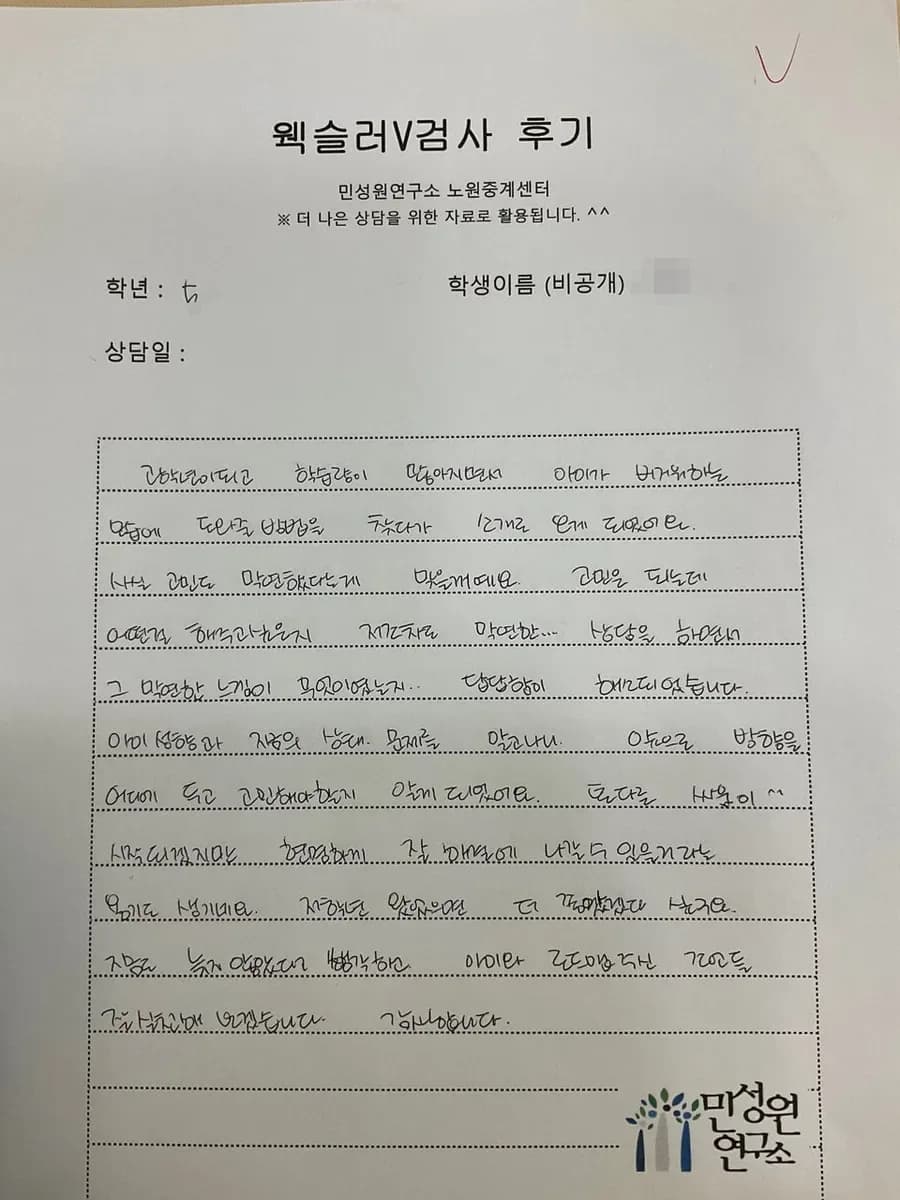 웩슬러V검사 후기
민성원연구소 노원중계센터
※ 더 나은 상담을 위한 자료로 활용됩니다. ^^
학년 : 5
학생이름 (비공개)
상담일 :
고학년이되고 학습량이 많아지면서 아이가 버거워하는
맘에 도와줄 방법을 찾다가 소개로 오게 되었어요.
사실 고민도 막연했다는게 맞을꺼예요. 고민은 되는데
어떤걸 해주고싶은지 저조차도 막연한... 상담을 하면서
그 막연한 느낌이 무엇이였는지.. 답답함이 해소되었습니다.
아이 성향과 지금의 상태. 문제를 알고나니 앞으로 방향을
어디에 두고 고민해야할지 알게 되었어요. 또다른 싸움이 ^^
시작되겠지만 현명하게 잘 해결해 나갈 수 있을거라는
용기도 생기네요. 저학년 왔었으면 더 좋았겠다 싶구요.
지금도 늦지 않았다고 생각하고 아이와 주신
보겠습니다. 감사합니다.
민성원
연구소